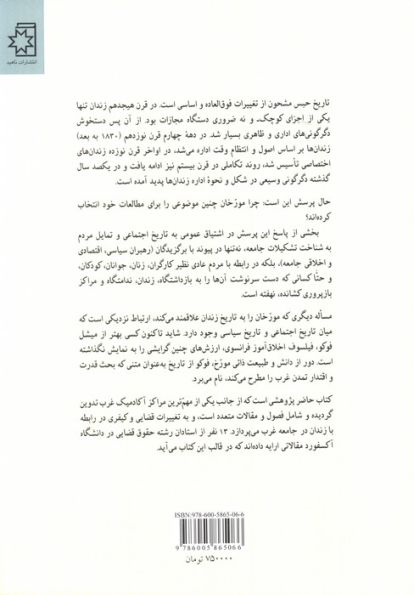 انتشارات ناهید
تاریخ حبس مشحون از تغییرات فوق‌العاده و اساسی است. در قرن هیجدهم زندان تنها
یکی از اجزای کوچک، و نه ضروری دستگاه مجازات بود. از آن پس دستخوش
دگرگونی‌های اداری و ظاهری بسیار شد. در دههٔ چهارم قرن نوزدهم (۱۸۳۰ به بعد)
زندان‌ها بر اساس اصول و انتظام وقت اداره می‌شد، در اواخر قرن نوزده زندان‌های
اختصاصی تأسیس شد، روند تکاملی در قرن بیستم نیز ادامه یافت و در یکصد سال
گذشته دگرگونی وسیعی در شکل و نحوهٔ اداره زندان‌ها پدید آمده است.
حال پرسش این است: چرا مورّخان چنین موضوعی را برای مطالعات خود انتخاب
کرده‌اند؟
بخشی از پاسخ این پرسش در اشتیاق عمومی به تاریخ اجتماعی و تمایل مردم
به شناخت تشکیلات جامعه، نه‌تنها در پیوند با برگزیدگان (رهبران سیاسی، اقتصادی
و اخلاقی جامعه)، بلکه در رابطه با مردم عادی نظیر کارگران، زنان، جوانان، کودکان،
و حتّا کسانی که دست سرنوشت آن‌ها را به بازداشتگاه، زندان، ندامتگاه و مراکز
بازپروری کشانده، نهفته است.
مسأله دیگری که مورّخان را به تاریخ زندان علاقمند می‌کند، ارتباط نزدیکی است که
میان تاریخ اجتماعی و تاریخ سیاسی وجود دارد. شاید تاکنون کسی بهتر از میشل
فوکو، فیلسوف اخلاق‌آموز فرانسوی، ارزش‌های چنین گرایشی را به نمایش نگذاشته
است. دور از دانش و طبیعت ذاتی مورّخ، فوکو از تاریخ به‌عنوان متنی که بحث قدرت
و اقتدار تمدن غرب را مطرح می‌کند، نام می‌برد.
کتاب حاضر پژوهشی است که از جانب یکی از مهم‌ترین مراکز آکادمیک غرب تدوین
گردیده و شامل فصول و مقالات متعدد است، و به تغییرات قضایی و کیفری در رابطه
با زندان در جامعه غرب می‌پردازد. ۱۳ نفر از استادان رشته حقوق قضایی در دانشگاه
آکسفورد مقالاتی ارایه داده‌اند که در قالب این کتاب می‌آید.
ISBN: 978-600-5865-06-6
9 786005 865066
۷۵۰۰۰۰ تومان